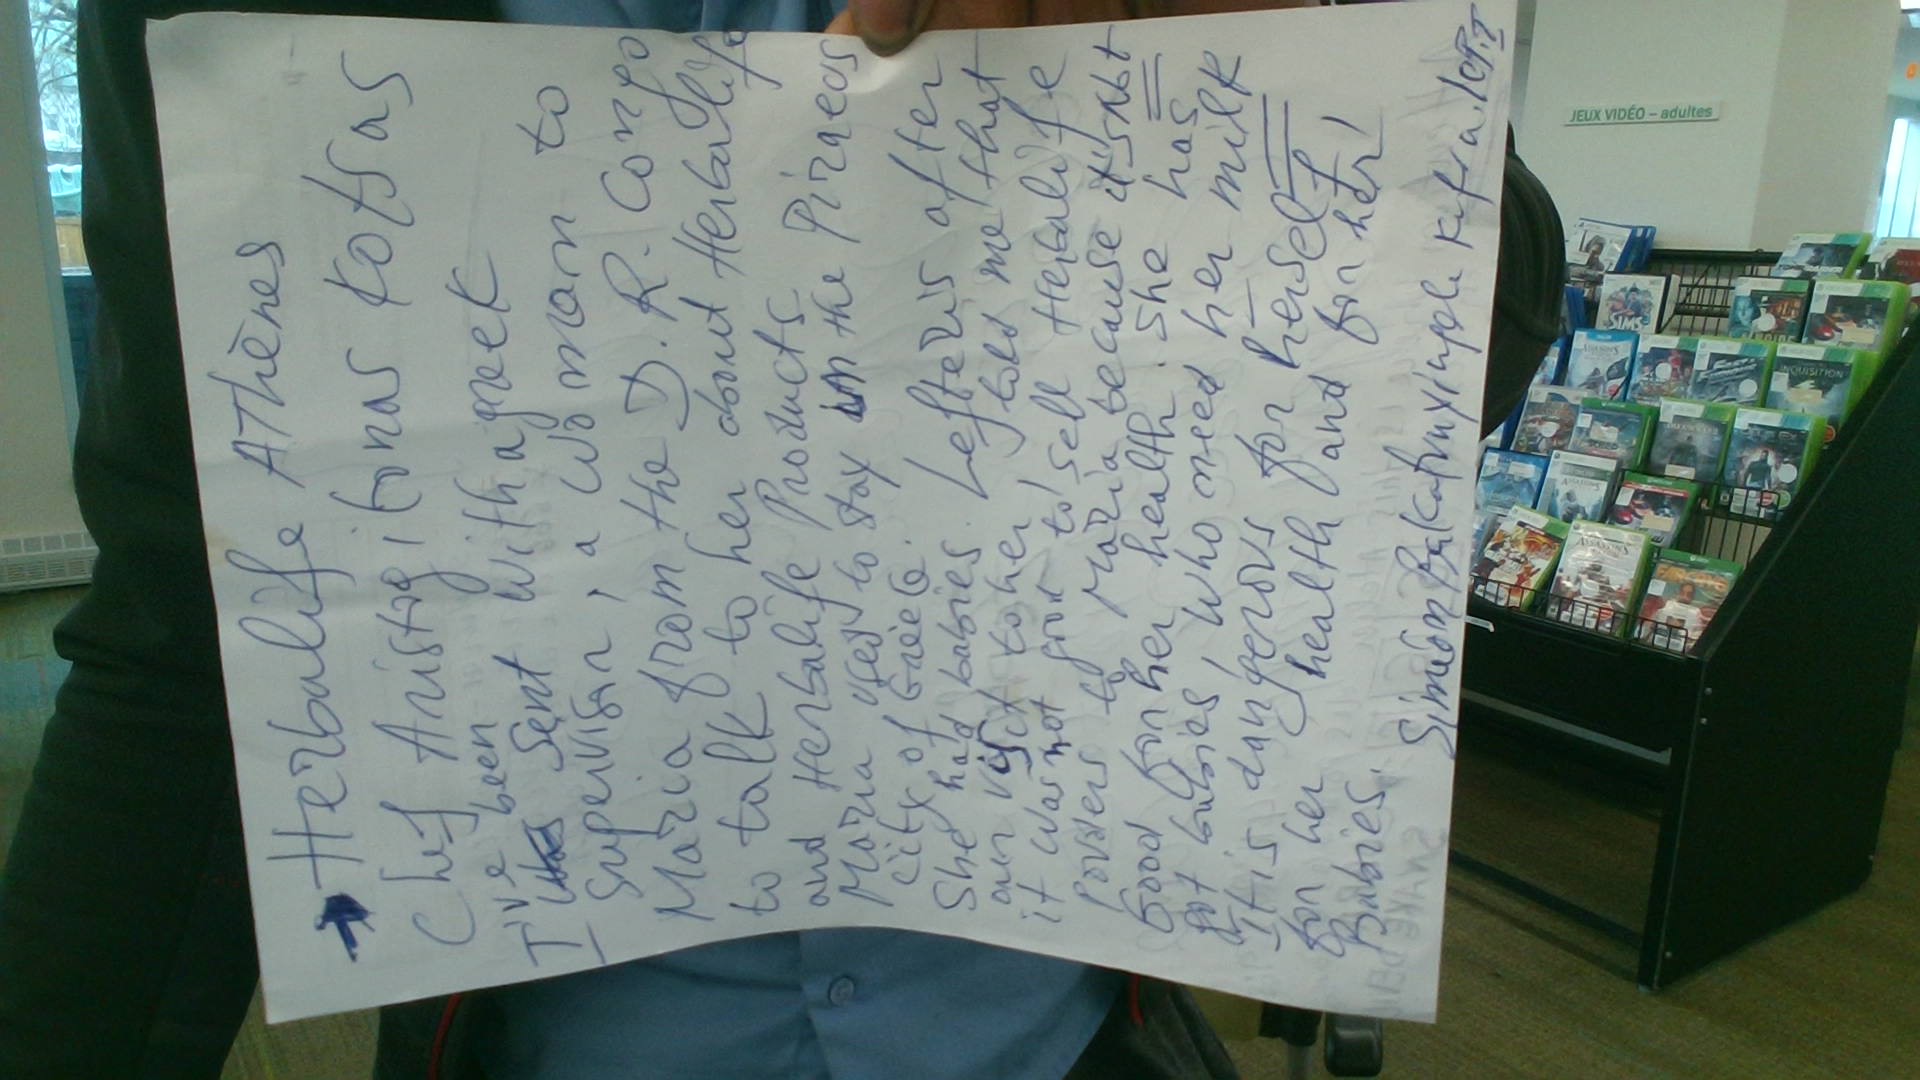 Herbalife Athènes
Chef Aristogitonas Kotsas
I've been sent with a greek
Supervisor, a woman to
Maria from the D.R. Congo
to talk to her about Herbalife
and Herbalife Products.
Maria used to stay in the Piraeus
City of Grèece.
She had babies. Lefteris after
our visit to her told me that
it was not for to sell Herbalife
to Maria because it's not
Good for her health. She has
got babies who need her milk
It is dangerous for herself
for her health and for her
Babies.
JEUX VIDÉO – adultes
SIMS
INQUISITION